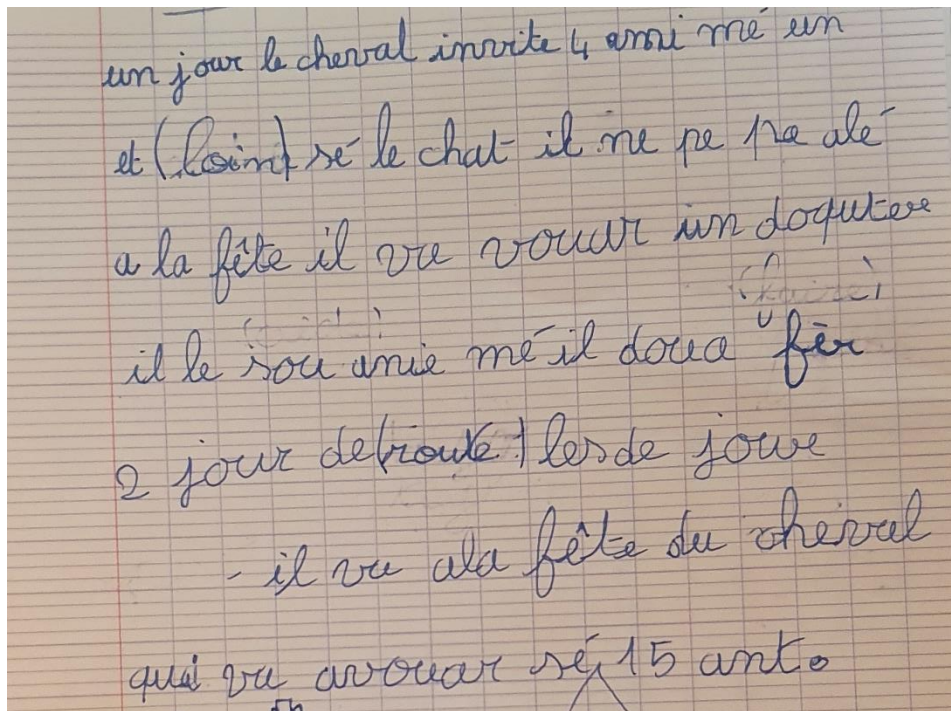 un jour le cheval invite 4 ami mé un
et (loin) sé le chat il ne pe pa alé
a la fête il va vouar un doquter
il le sou anie mé il doua fèr
2 jour de (route) les de joure
- il va ala fête du cheval
qui va avouar sé 15 ant.